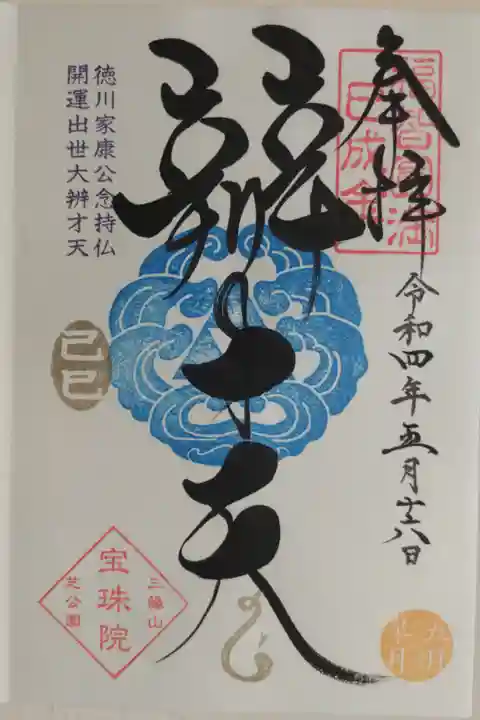 奉拝
福智圓満
巳成金
令和四年五月十六日
辨才天
徳川家康公念持仏
開運出世大辨才天
己巳
三縁山
宝珠院
芝公園